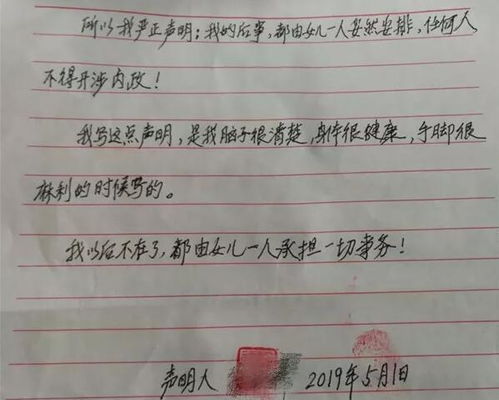 所以我严正声明：我的后事，都由女儿一人安然安排，任何人
不得干涉内政！
我写这点声明，是我脑子很清楚，身体很健康，手脚很
麻利的时候写的。
我以后不在了，都由女儿一人承担一切事务！
声明人 2019年5月1日